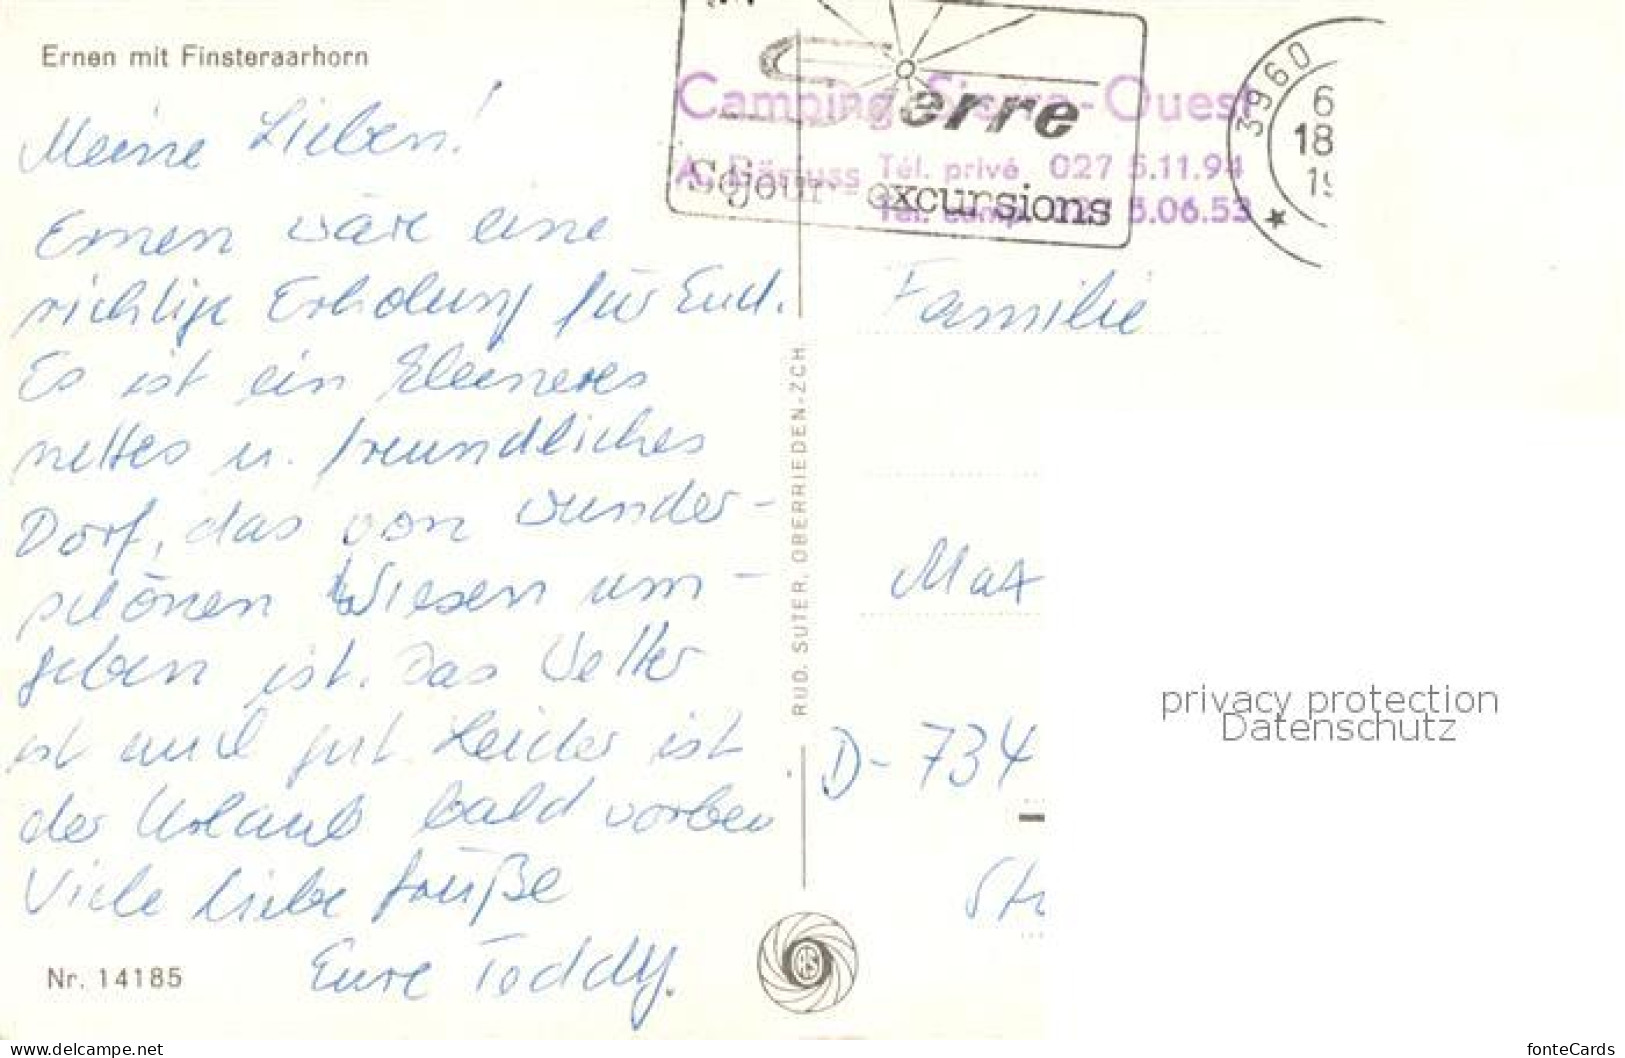 Ernen mit Finsteraarhorn
Meine Lieben!
Ernen wäre eine
richtige Erholung für Euch.
Es ist ein kleineres
nettes u. freundliches
Dorf, das von wunder-
schönen Wiesen um-
geben ist. Das Wetter
ist auch gut. Leider ist
der Urlaub bald vorbei
Viele liebe Grüße
Eure Toddy.
Nr. 14185
RUD. SUTER, OBERRIEDEN-ZCH.
Sierre
Séjour - excursions
Camping Sierre-Ouest
Tél. privé 027 5.11.94
Tél. camp. 5.06.53
3960
6
18
19
Familie
D-734
privacy protection
Datenschutz
www.delcampe.net
fonteCards